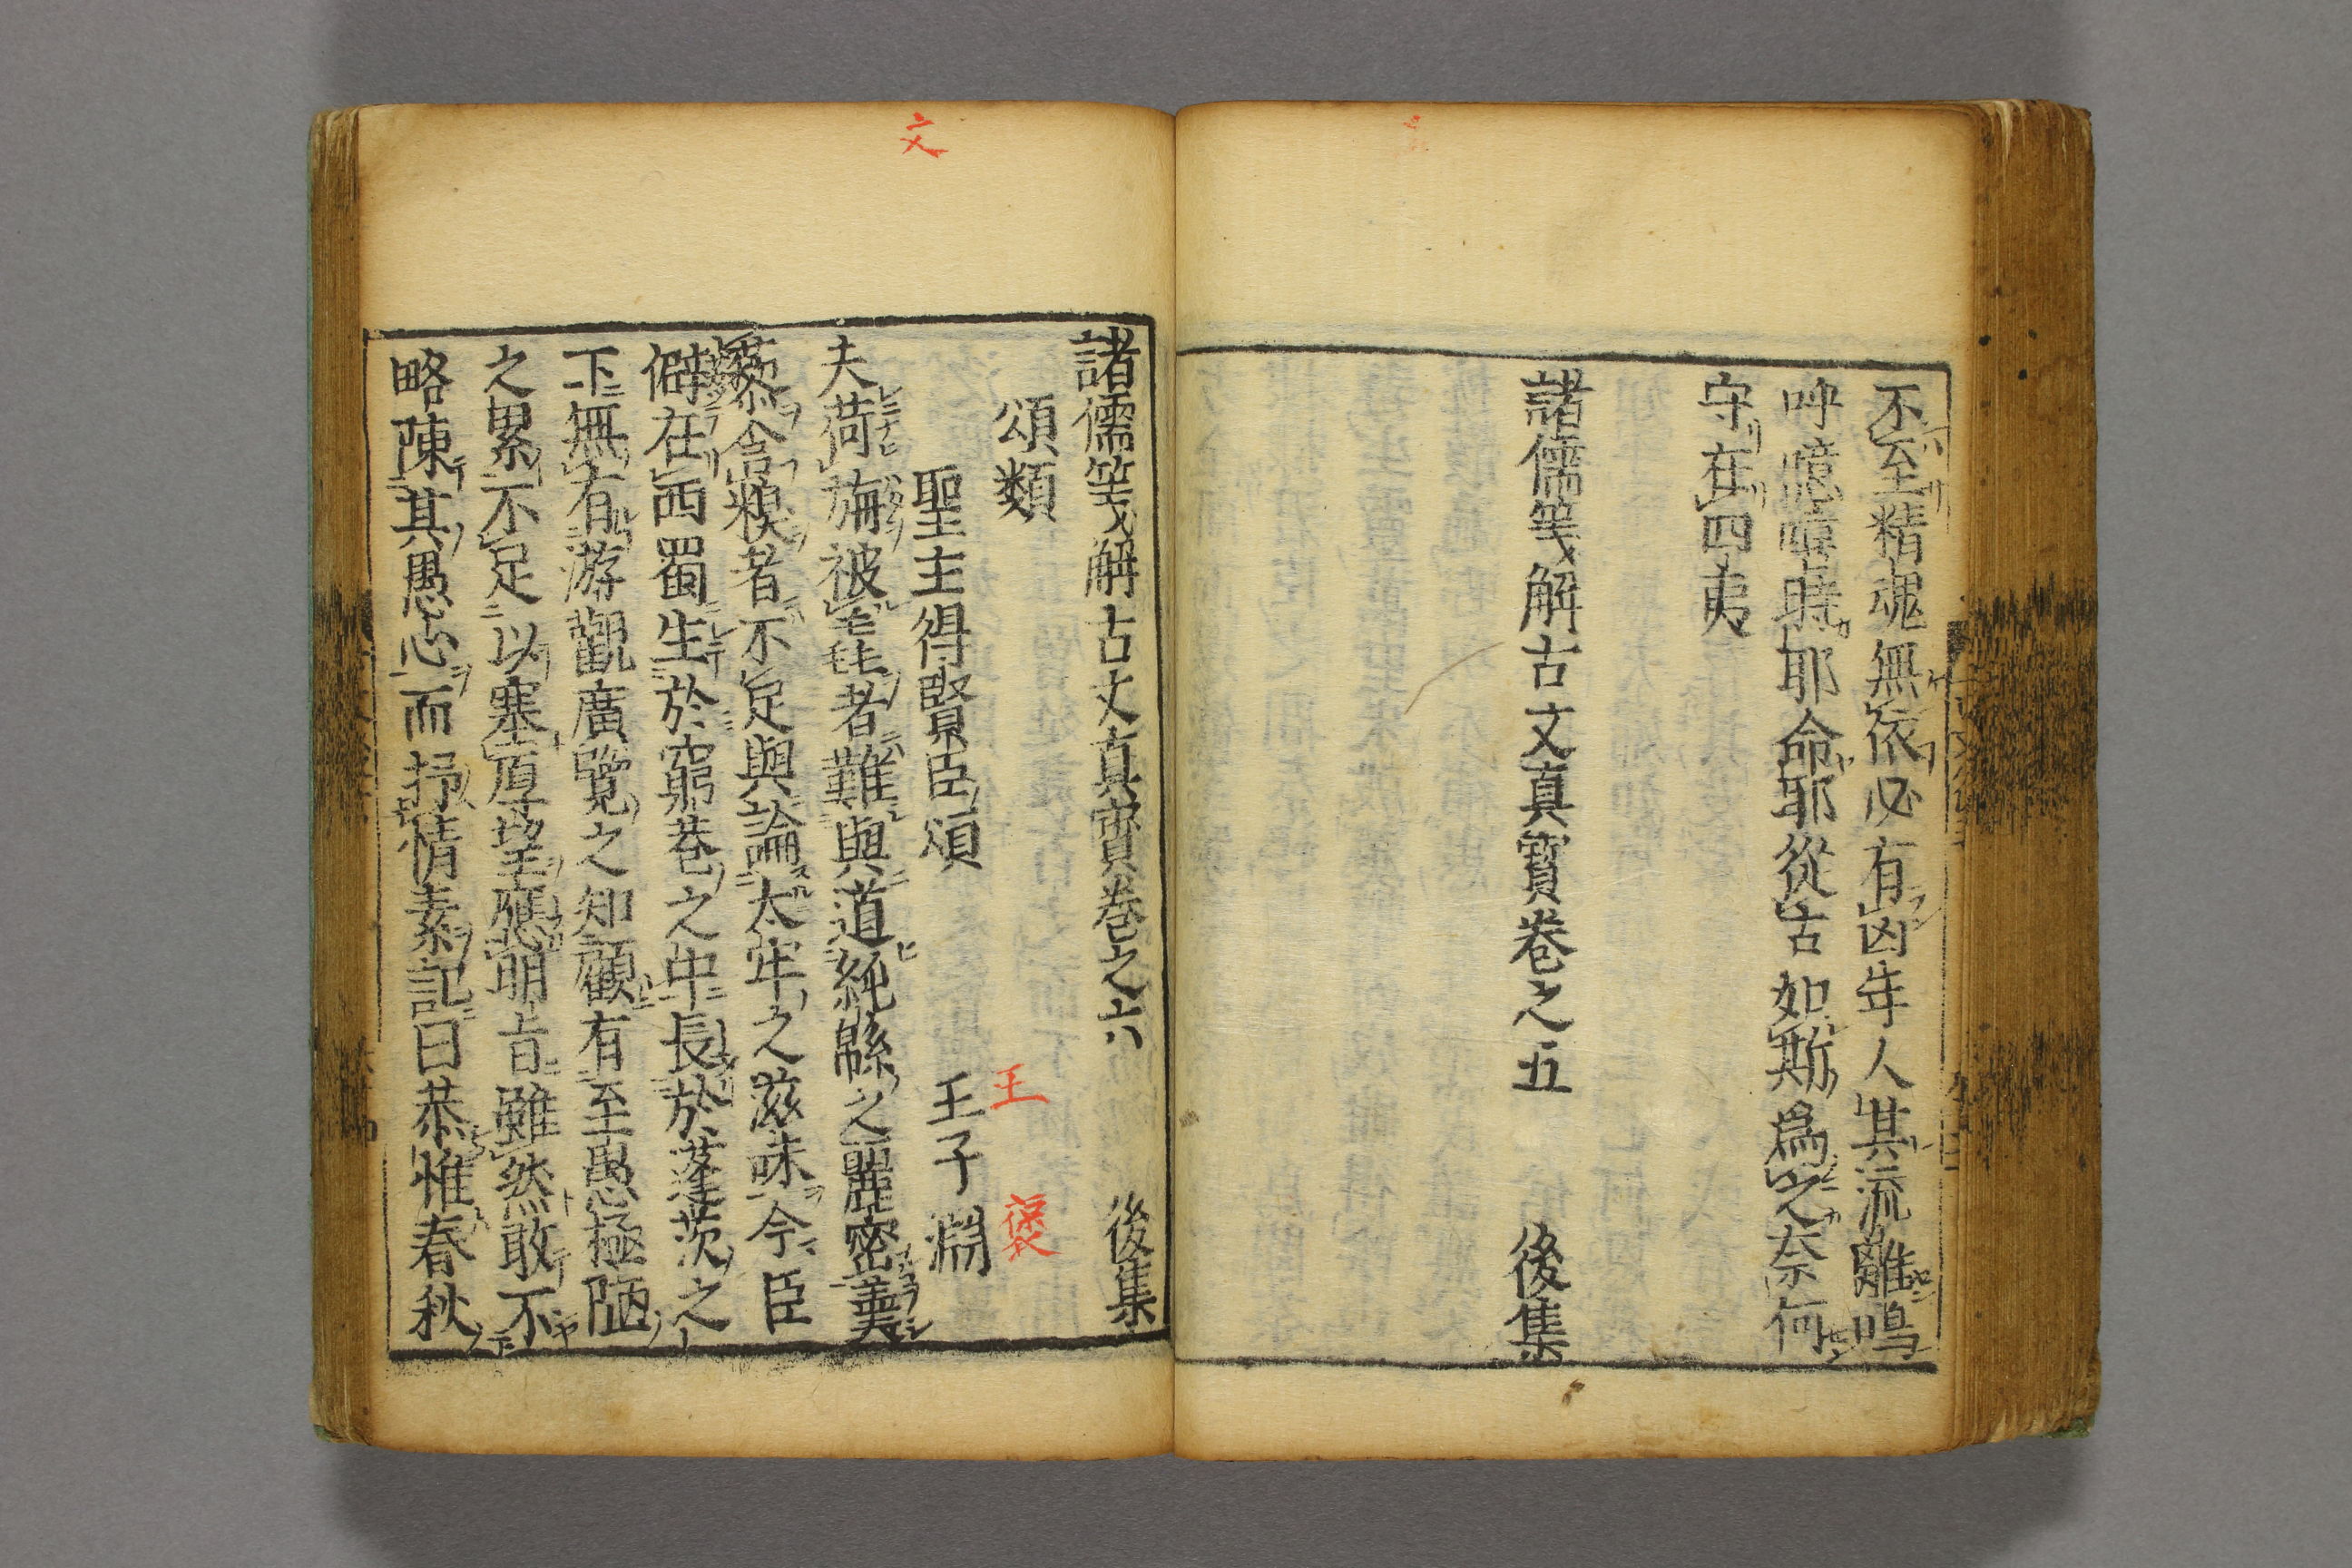 不至精魂無依必有凶年人其流離嗚
呼噫嘻時耶命耶從古如斯爲之奈何
守在四夷
諸儒箋解古文真寳卷之五 後集
文
諸儒箋解古文真寳卷之六 後集
頌類
王 褒
聖主得賢臣頌 王子淵
夫荷旃被毳者難與道純緜之麗密羹
藜含糗者不足與論太牢之滋味今臣
僻在西蜀生於窮巷之中長於蓬茨之
下無有游觀廣覽之知顧有至愚極陋
之累不足以塞厚望應明旨雖然敢不
略陳其愚心而抒情素記曰恭惟春秋